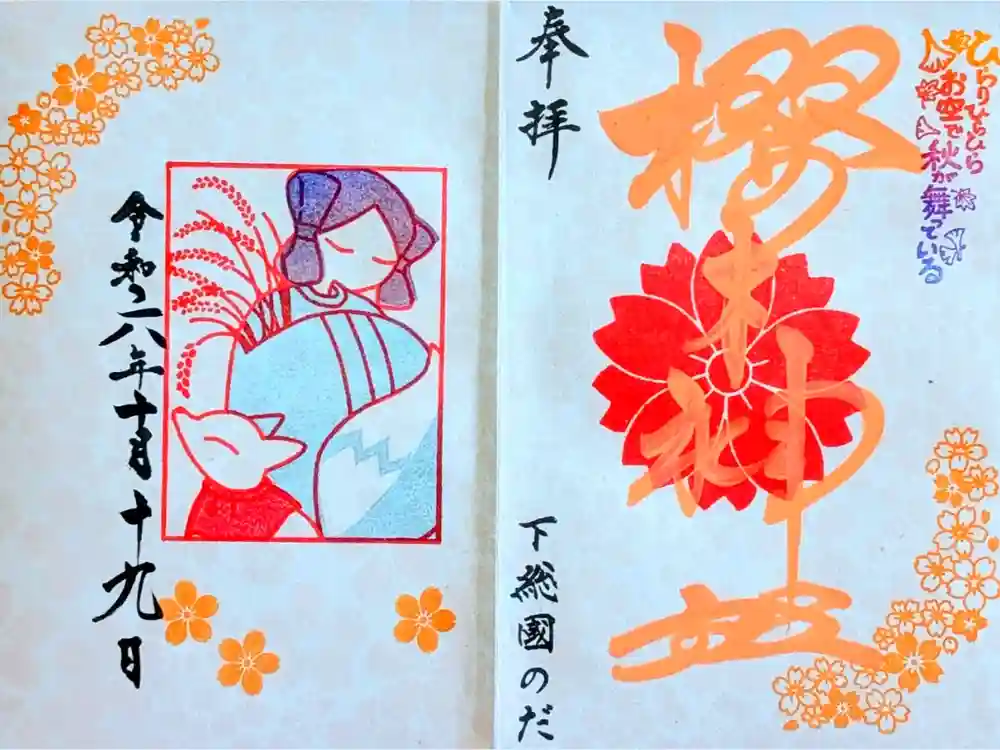 ひらりひらひら
お空で秋が舞っている
櫻木神社
奉拝
下総國のだ
令和六年十月十九日